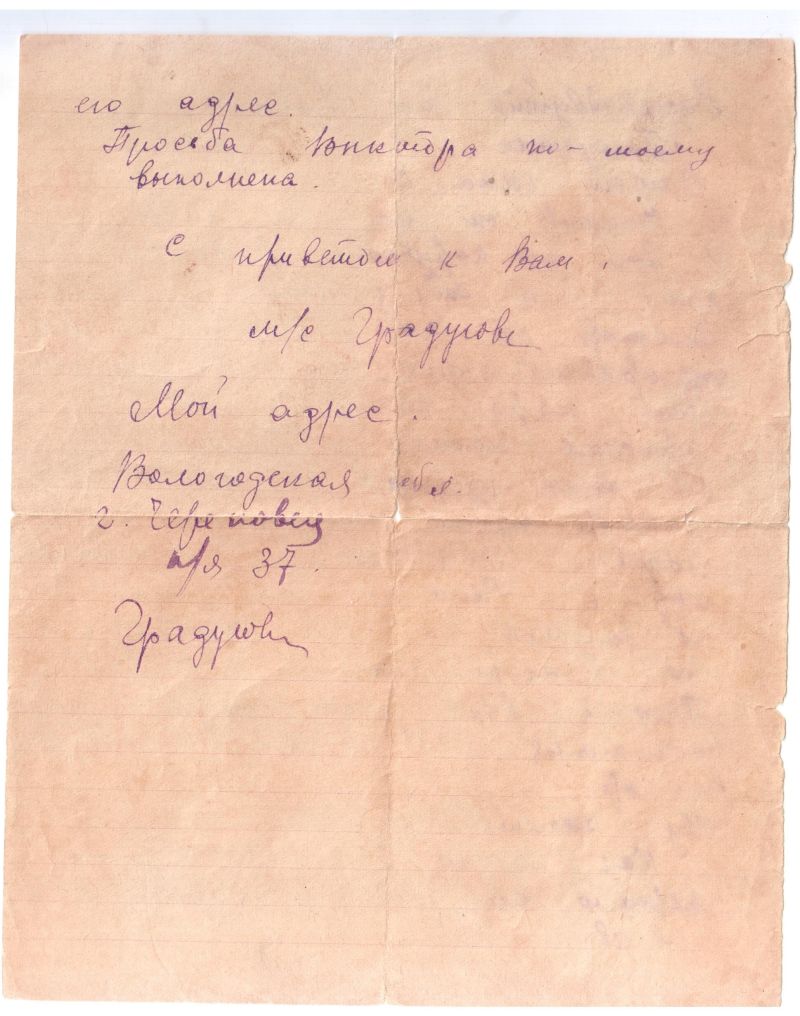 его адрес.
Просьба Виктора по-моему
выполнена.
С приветом к Вам.
м/с Градусов
Мой адрес.
Вологодская обл.
г. Череповец
п/я 37.
Градусов